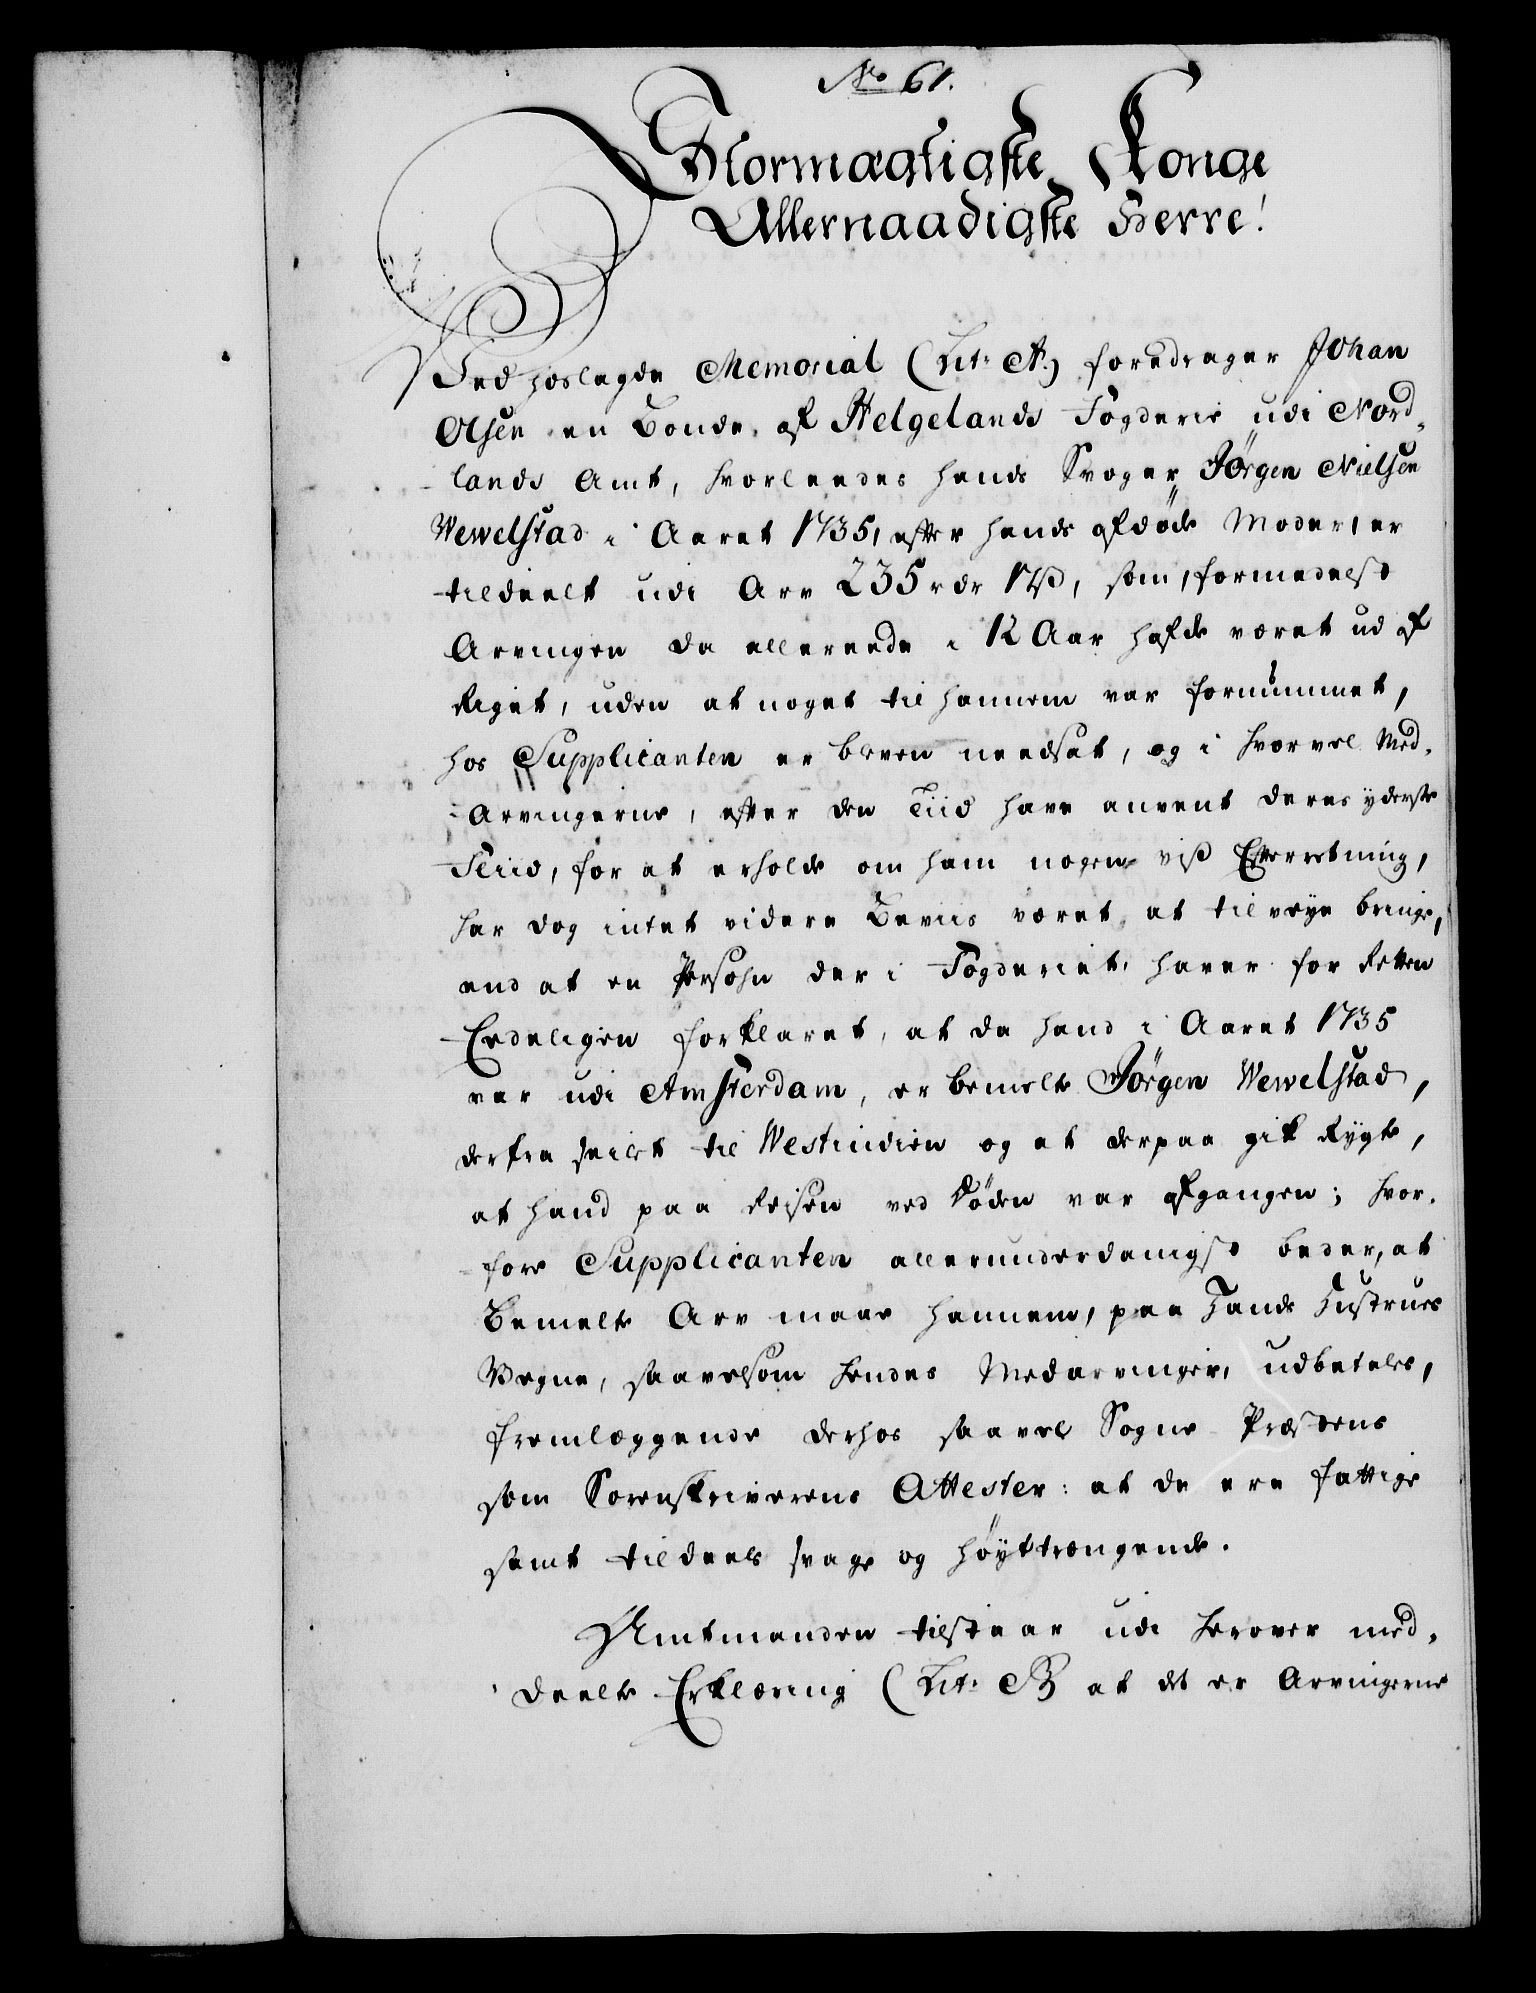 No 61.
Stormægtigste Konge
Allernaadigste Herre!
Ved hoslagde Memorial (Lit: A.) foredrager Johan
Olsen en Bonde af Helgelands Fogderie udi Nord-
lands Amt, hvorleedes hands Svoger Jörgen Nielsen
Wewelstad i Aaret 1735, efter hands afdöde Moder, er
tildeelt udi Arv 235 rdr 1 ß, som, formedelst
Arvingen da allereede i 12 Aar hafde været ud af
Riget, uden at noget til hannem var fornummet,
hos Supplicanten er bleven needsat, og i hvorvel Med-
Arvingerne, efter den Tiid have anvent deres yderste
Fliid, for at erholde om ham nogen viß Efterretning,
har dog intet videre Beviis været at tilveye bringe,
end at en Persohn der i Fogderiet haver for Retten
Eedeligen forklaret, at da hand i Aaret 1735
var udi Amsterdam, er bemelte Jörgen Wewelstad,
derfra seilet til Westindien og at derpaa gik Rygte,
at hand paa Reisen ved Döden var afgangen; hvor-
fore Supplicanten allerunderdanigst beder, at
Bemelte Arv maae hannem, paa Hands Hustrues
Vegne, saavelsom hendes Medarvinger, udbetales,
fremlæggende derhos saavel Sogne-Præstens
som Sorenskriverens Attester: at de ere fattige
samt tildeels svage og höyttrængende.
Amtmanden tilstaar udi herover med-
deelte Erklæring (Lit: B at det er Arvingerne